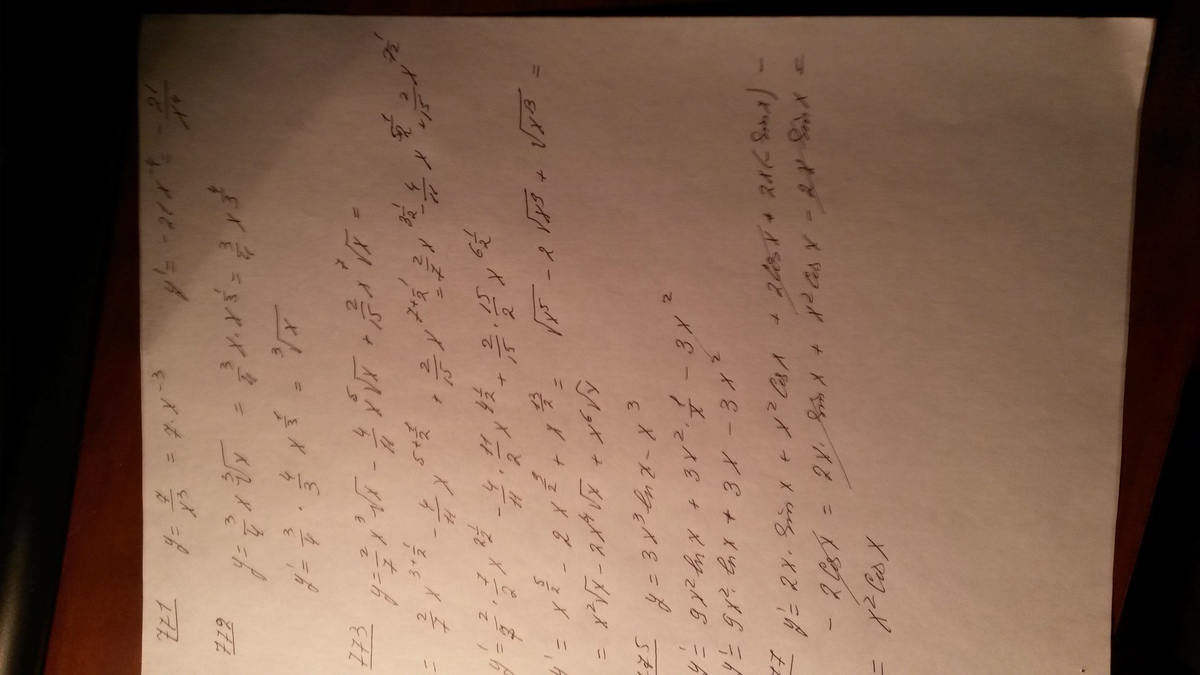 771 y = 7/x³ = 7·x⁻³ y' = -21x⁻⁴ = -21/x⁴
772 y = 3/4 x ∛x = 3/4 x · x^(1/3) = 3/4 x^(4/3)
y' = 3/4 · 4/3 x^(1/3) = ∛x
773 y = 2/7 x³√x - 4/11 x⁵√x + 2/15 x⁷√x =
= 2/7 x^(3+1/2) - 4/11 x^(5+1/2) + 2/15 x^(7+1/2) = 2/7 x^(3 1/2) - 4/11 x^(5 1/2) + 2/15 x^(7 1/2)
y' = 2/7 · 7/2 x^(2 1/2) - 4/11 · 11/2 x^(4 1/2) + 2/15 · 15/2 x^(6 1/2)
y' = x^(5/2) - 2x^(9/2) + x^(13/2) = √x⁵ - 2√x⁹ + √x¹³ =
= x²√x - 2x⁴√x + x⁶√x
775 y = 3x³ ln x - x³
y' = 9x² ln x + 3x³ · 1/x - 3x²
y' = 9x² · ln x + 3x² - 3x²
77 y' = 2x · sin x + x² cos x + 2cos x + 2x(-sin x) -
- 2cos x = 2x · sin x + x² cos x - 2x sin x =
= x² cos x